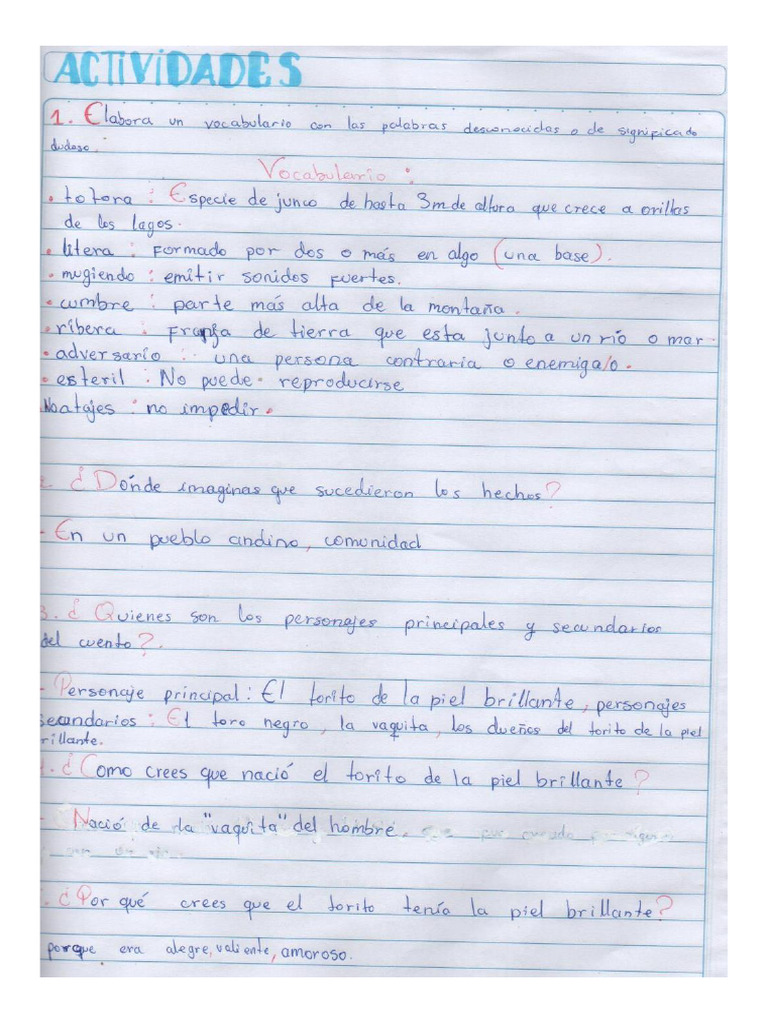 ACTIVIDADES
1. Elabora un vocabulario con las palabras desconocidas o de significado
dudoso.
Vocabulario :
. totora : Especie de junco de hasta 3m de altura que crece a orillas
de los lagos.
. litera : Formado por dos o más en algo (una base).
. mugiendo : emitir sonidos fuertes.
. cumbre : parte más alta de la montaña.
. ribera : Franja de tierra que esta junto a un río o mar.
. adversario : una persona contraria o enemiga/o.
. esteril : No puede reproducirse
No atajes : no impedir.
. ¿Dónde imaginas que sucedieron los hechos?
- En un pueblo andino, comunidad
3. ¿Quienes son los personajes principales y secundarios
del cuento?.
- Personaje principal: El torito de la piel brillante, personajes
secundarios : El toro negro, la vaquita, los dueños del torito de la piel
rillante.
. ¿Como crees que nació el torito de la piel brillante?
- Nació de la "vaquita" del hombre,
. ¿Por qué crees que el torito tenía la piel brillante?
porque era alegre, valiente, amoroso.